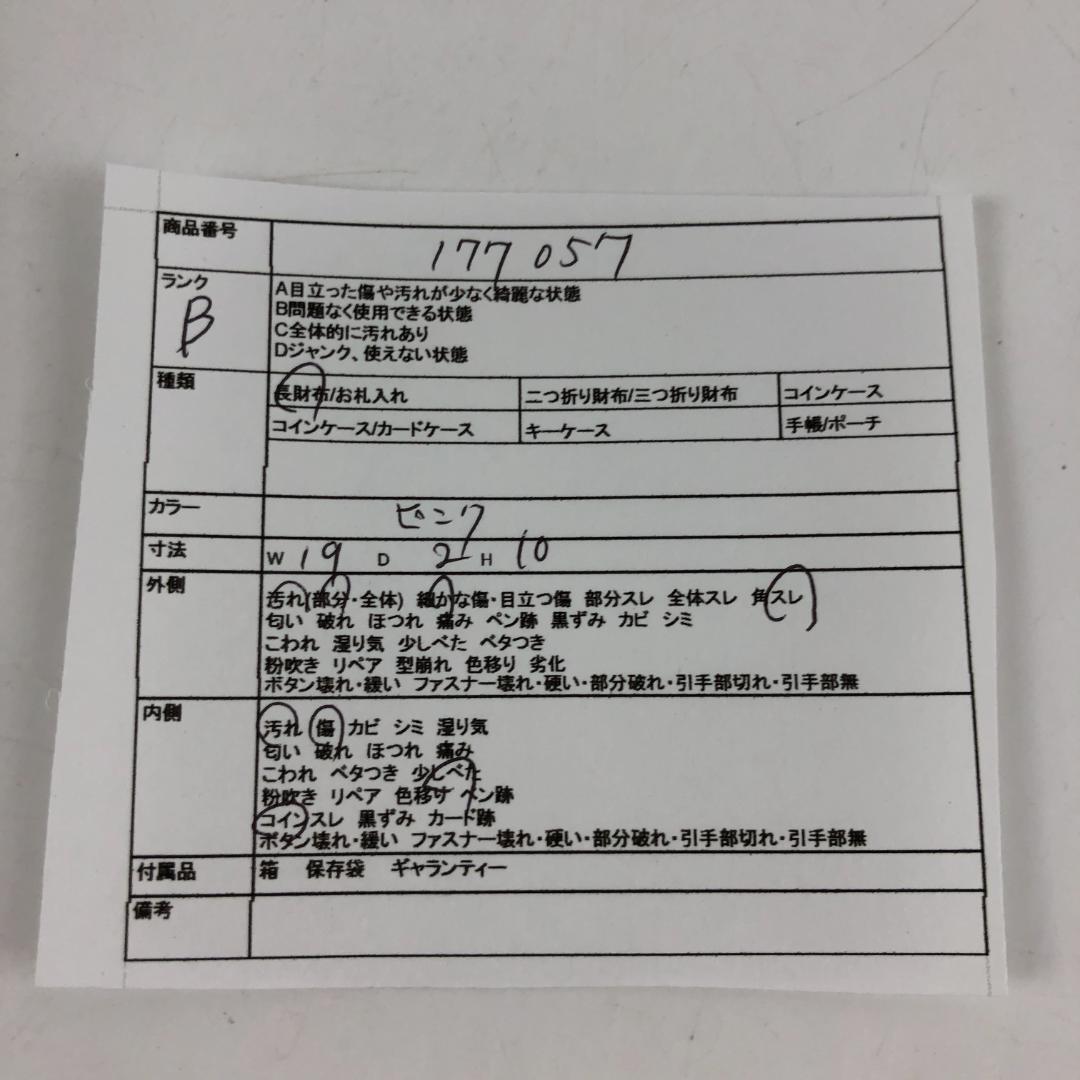 商品番号 177057
ランク B
A目立った傷や汚れが少なく綺麗な状態
B問題なく使用できる状態
C全体的に汚れあり
Dジャンク、使えない状態
種類 長財布/お札入れ 二つ折り財布/三つ折り財布 コインケース
コインケース/カードケース キーケース 手帳/ポーチ
カラー ピンク
寸法 W 19 D 2 H 10
外側 汚れ(部分・全体) 細かな傷・目立つ傷 部分スレ 全体スレ 角スレ
匂い 破れ ほつれ 痛み ペン跡 黒ずみ カビ シミ
こわれ 湿り気 少しべた ベタつき
粉吹き リペア 型崩れ 色移り 劣化
ボタン壊れ・緩い ファスナー壊れ・硬い・部分破れ・引手部切れ・引手部無
内側 汚れ 傷 カビ シミ 湿り気
匂い 破れ ほつれ 痛み
こわれ ベタつき 少しべた
粉吹き リペア 色移り ペン跡
コインスレ 黒ずみ カード跡
ボタン壊れ・緩い ファスナー壊れ・硬い・部分破れ・引手部切れ・引手部無
付属品 箱 保存袋 ギャランティー
備考